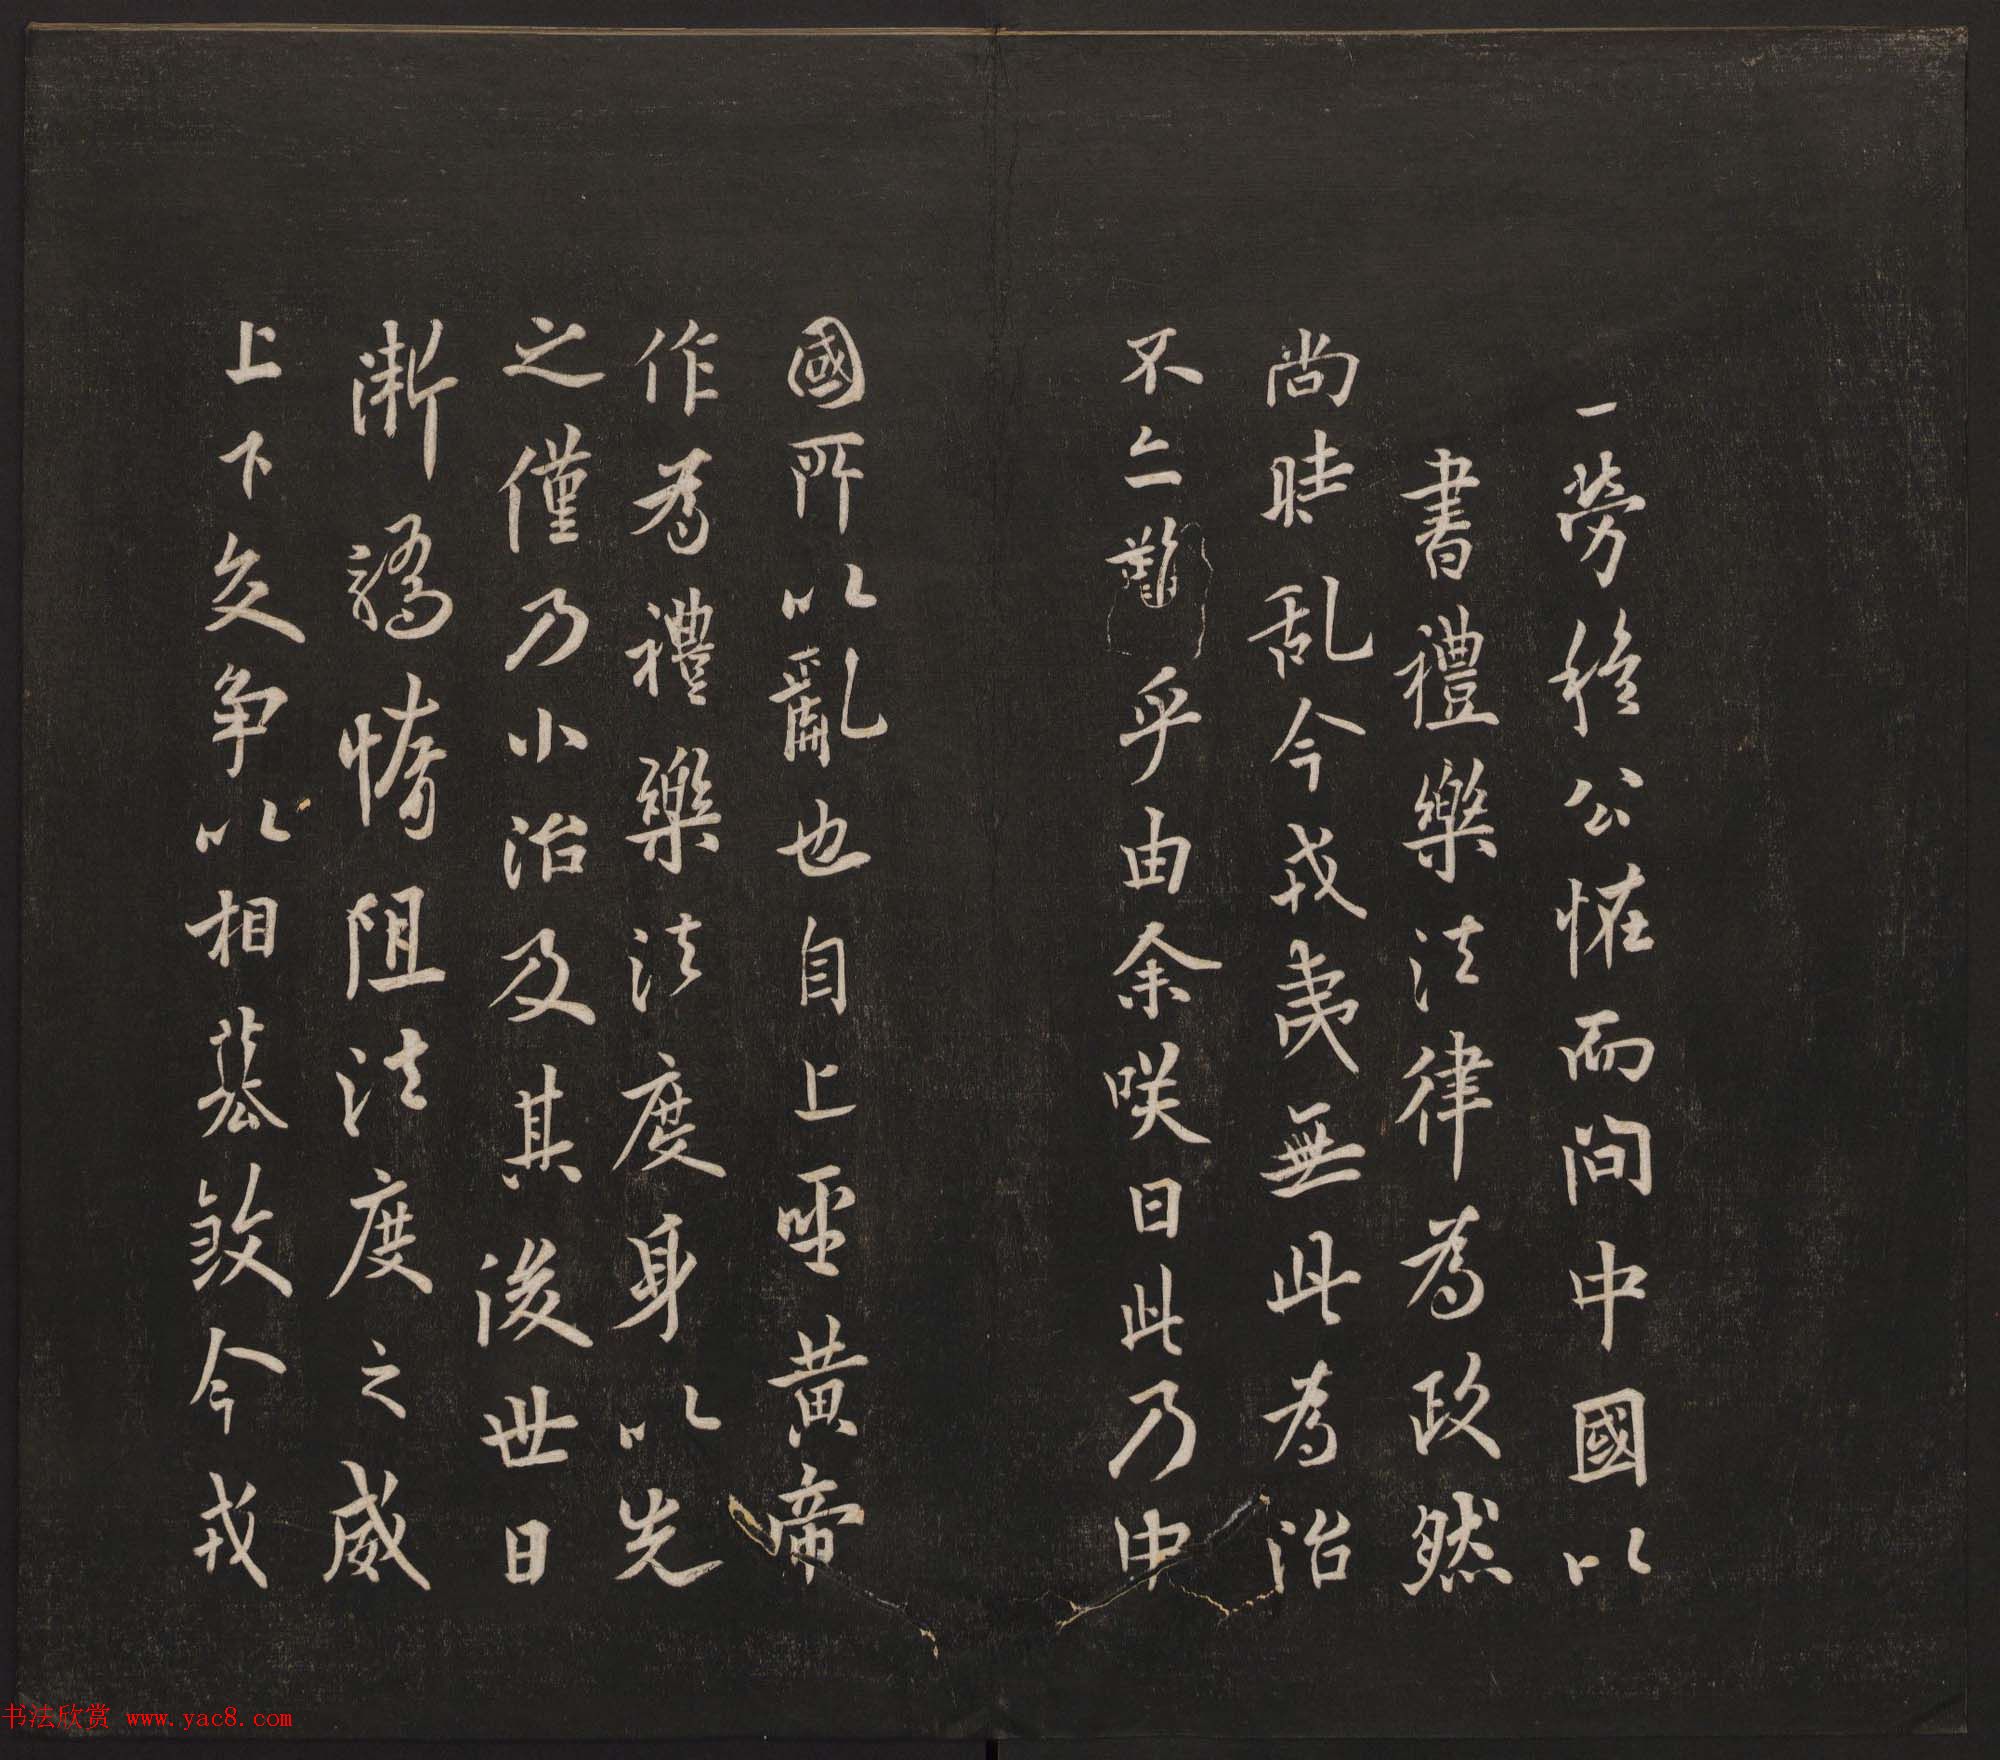 一勞穆公恠而問中國以
書禮樂法律為政然
尚時乱今戎夷無此為治
不亦難乎由余咲曰此乃中
國所以亂也自上聖黃帝
作為禮樂法度身以先
之僅乃小治及其後世日
漸驕惰阻法度之威
上下交争以相今戎
书法欣赏 www.yac8.com